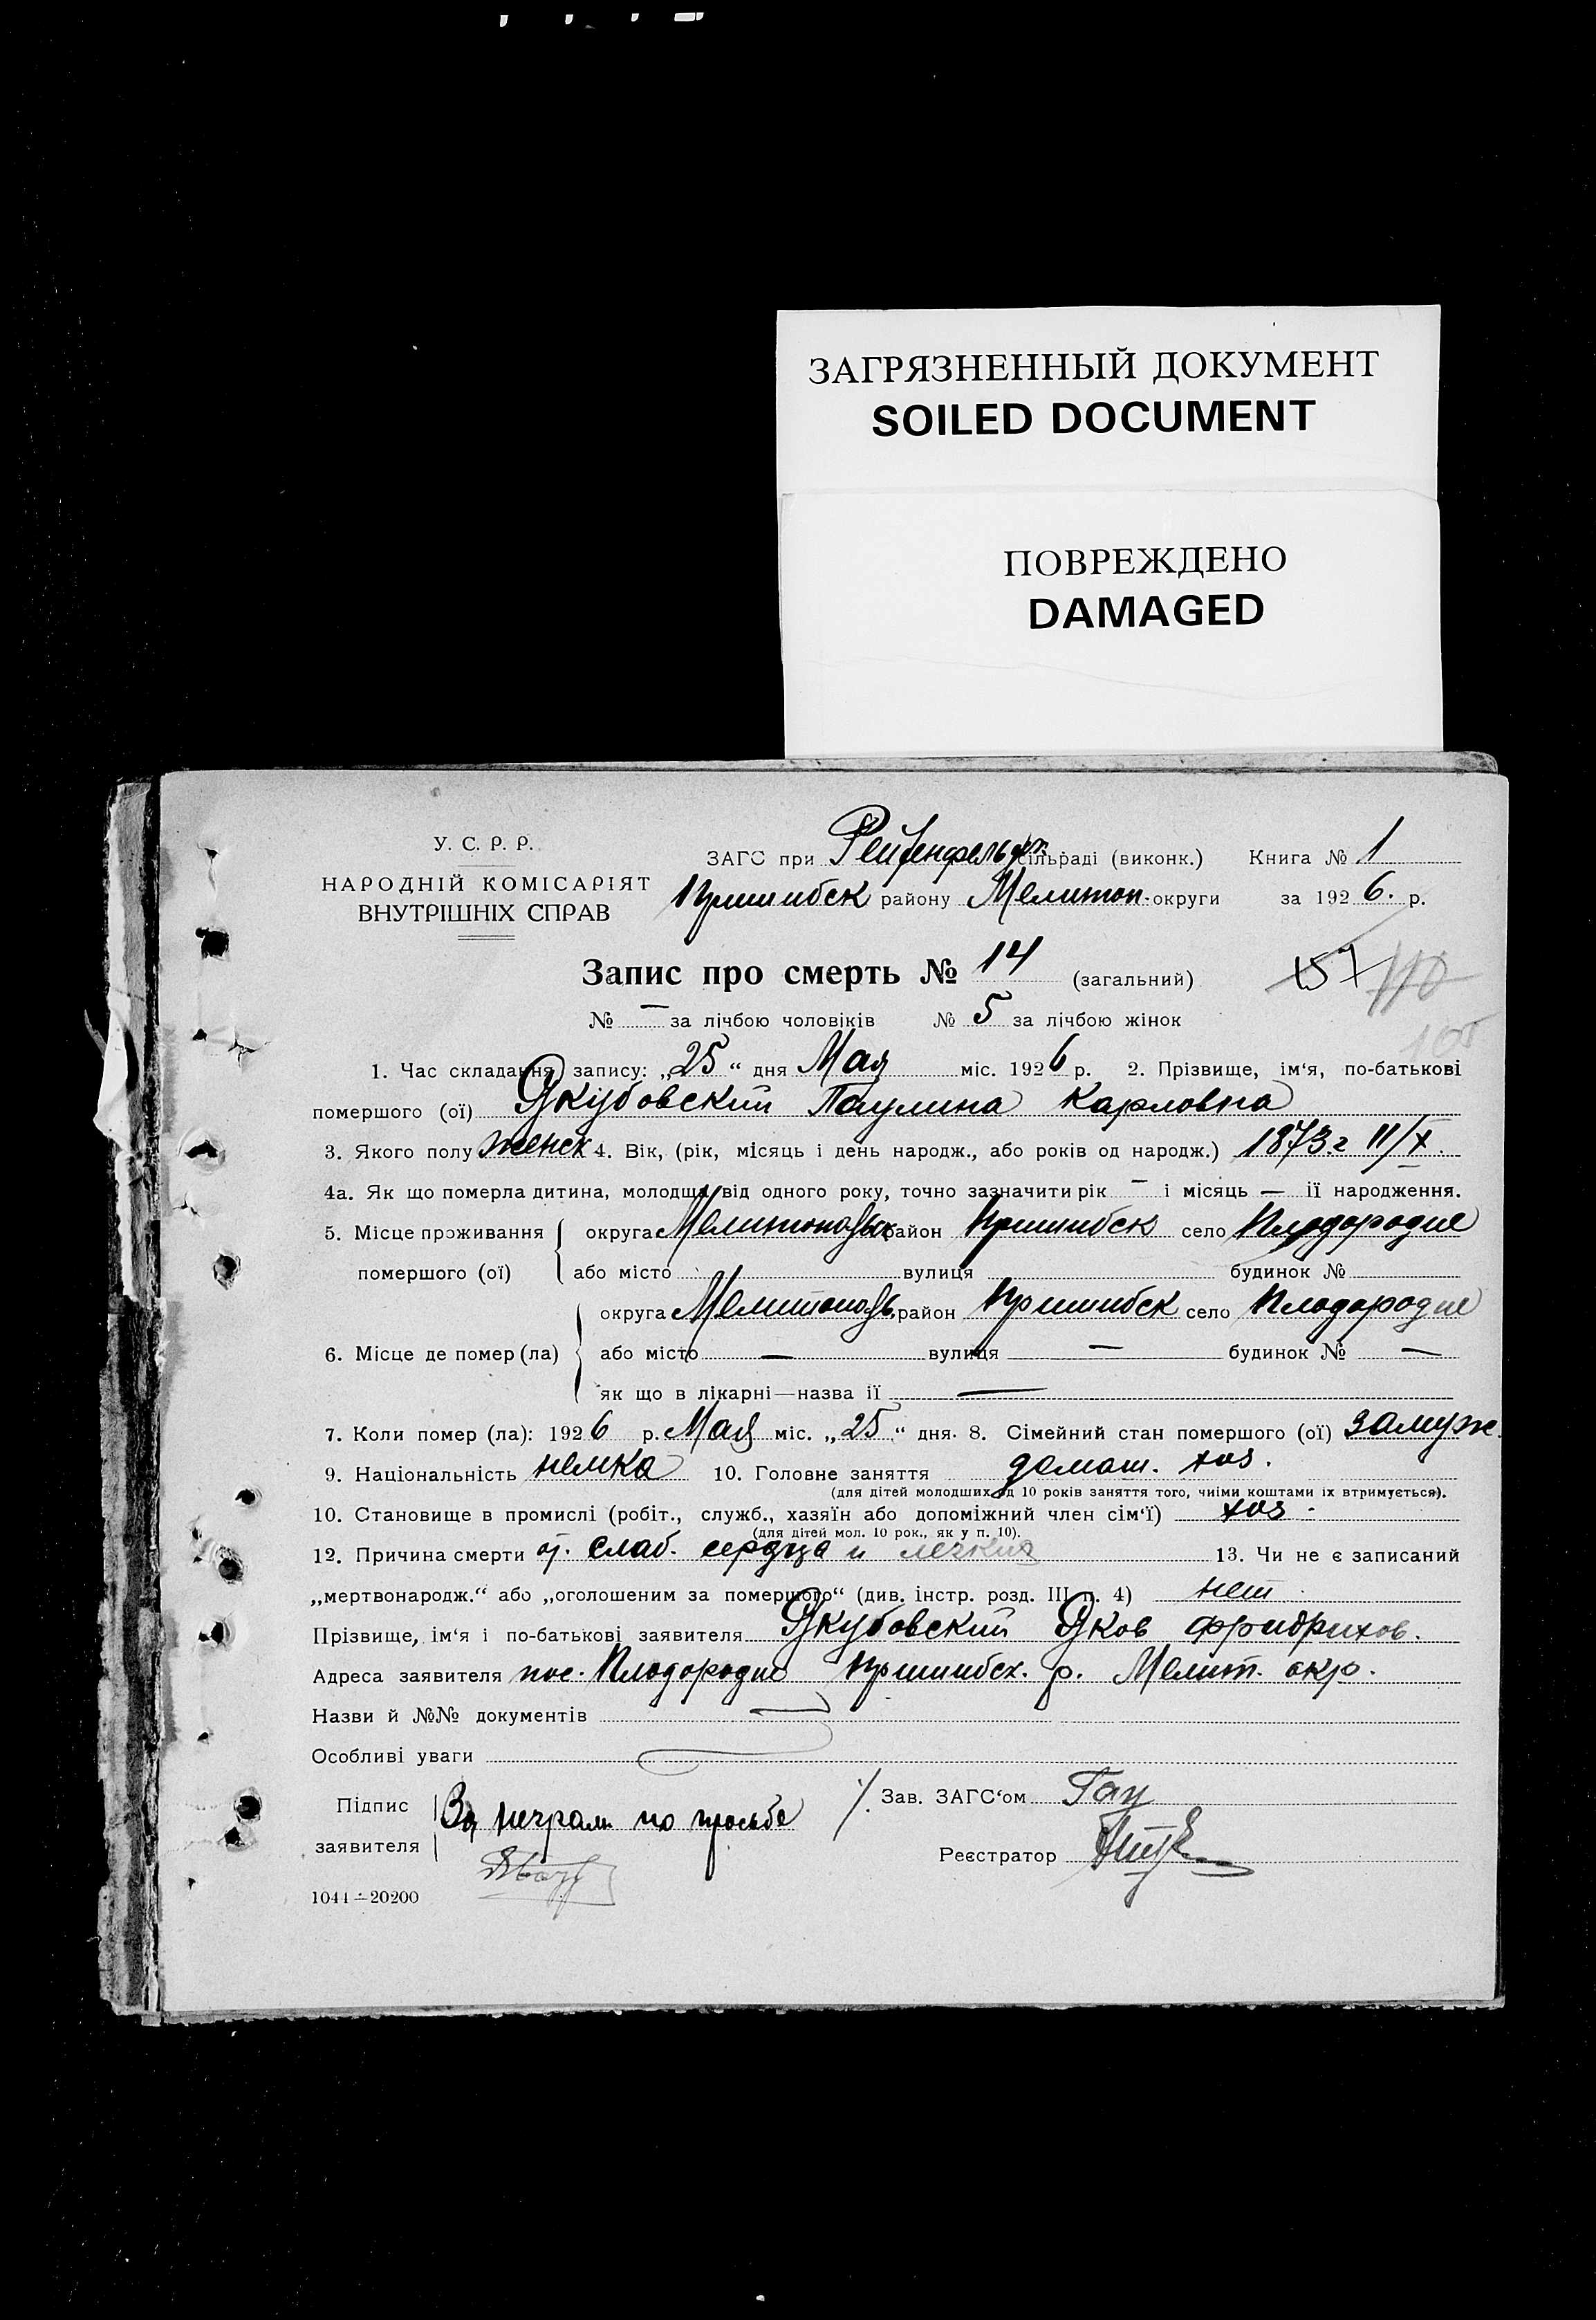 ЗАГРЯЗНЕННЫЙ ДОКУМЕНТ
SOILED DOCUMENT
ПОВРЕЖДЕНО
DAMAGED
У. С. Р. Р.
НАРОДНІЙ КОМІСАРІЯТ
ВНУТРІШНІХ СПРАВ
ЗАГС при Рейхенфельдск. сільраді (виконк.) Книга № 1
Пришибск району Мелитоп. округи за 1926. р.
Запис про смерть № 14 (загальний)
157 110
№ — за лічбою чоловіків № 5 за лічбою жінок
105
1. Час складання запису: „25“ дня Мая міс. 1926 р. 2. Прізвище, ім‘я, по-батькові
помершого (ої) Якубовский Паулина Карловна
3. Якого полу женск 4. Вік, (рік, місяць і день народж., або років од народж.) 1873 г 11/X.
4а. Як що померла дитина, молодща від одного року, точно зазначити рік — і місяць — її народження.
5. Місце проживання помершого (ої) округа Мелитопольск район Пришибск село Плодородие
або місто вулиця будинок №
6. Місце де помер (ла) округа Мелитополь район Пришибск село Плодородие
або місто — вулиця — будинок № —
як що в лікарні—назва її —
7. Коли помер (ла): 1926 р. Мая міс. „25“ дня. 8. Сімейний стан помершого (ої) замуж.
9. Національність немка 10. Головне заняття домаш. хоз.
(для дітей молодших од 10 років заняття того, чиїми коштами їх втримується).
10. Становище в промислі (робіт., служб., хазяїн або допоміжний член сім‘ї) хоз -
(для дітей мол. 10 рок., як у п. 10).
12. Причина смерти от. слаб. сердца и легких 13. Чи не є записаний
„мертвонародж.“ або „оголошеним за помершого“ (див. інстр. розд. III п. 4) нет
Прізвище, ім‘я і по-батькові заявителя Якубовский Яков Фридрихов.
Адреса заявителя пос. Плодородие Пришибск. р. Мелит. окр.
Назви й №№ документів
Особливі уваги
Підпис заявителя За неграм. по просьбе
Зав. ЗАГС‘ом Гау
Реєстратор
1041—20200